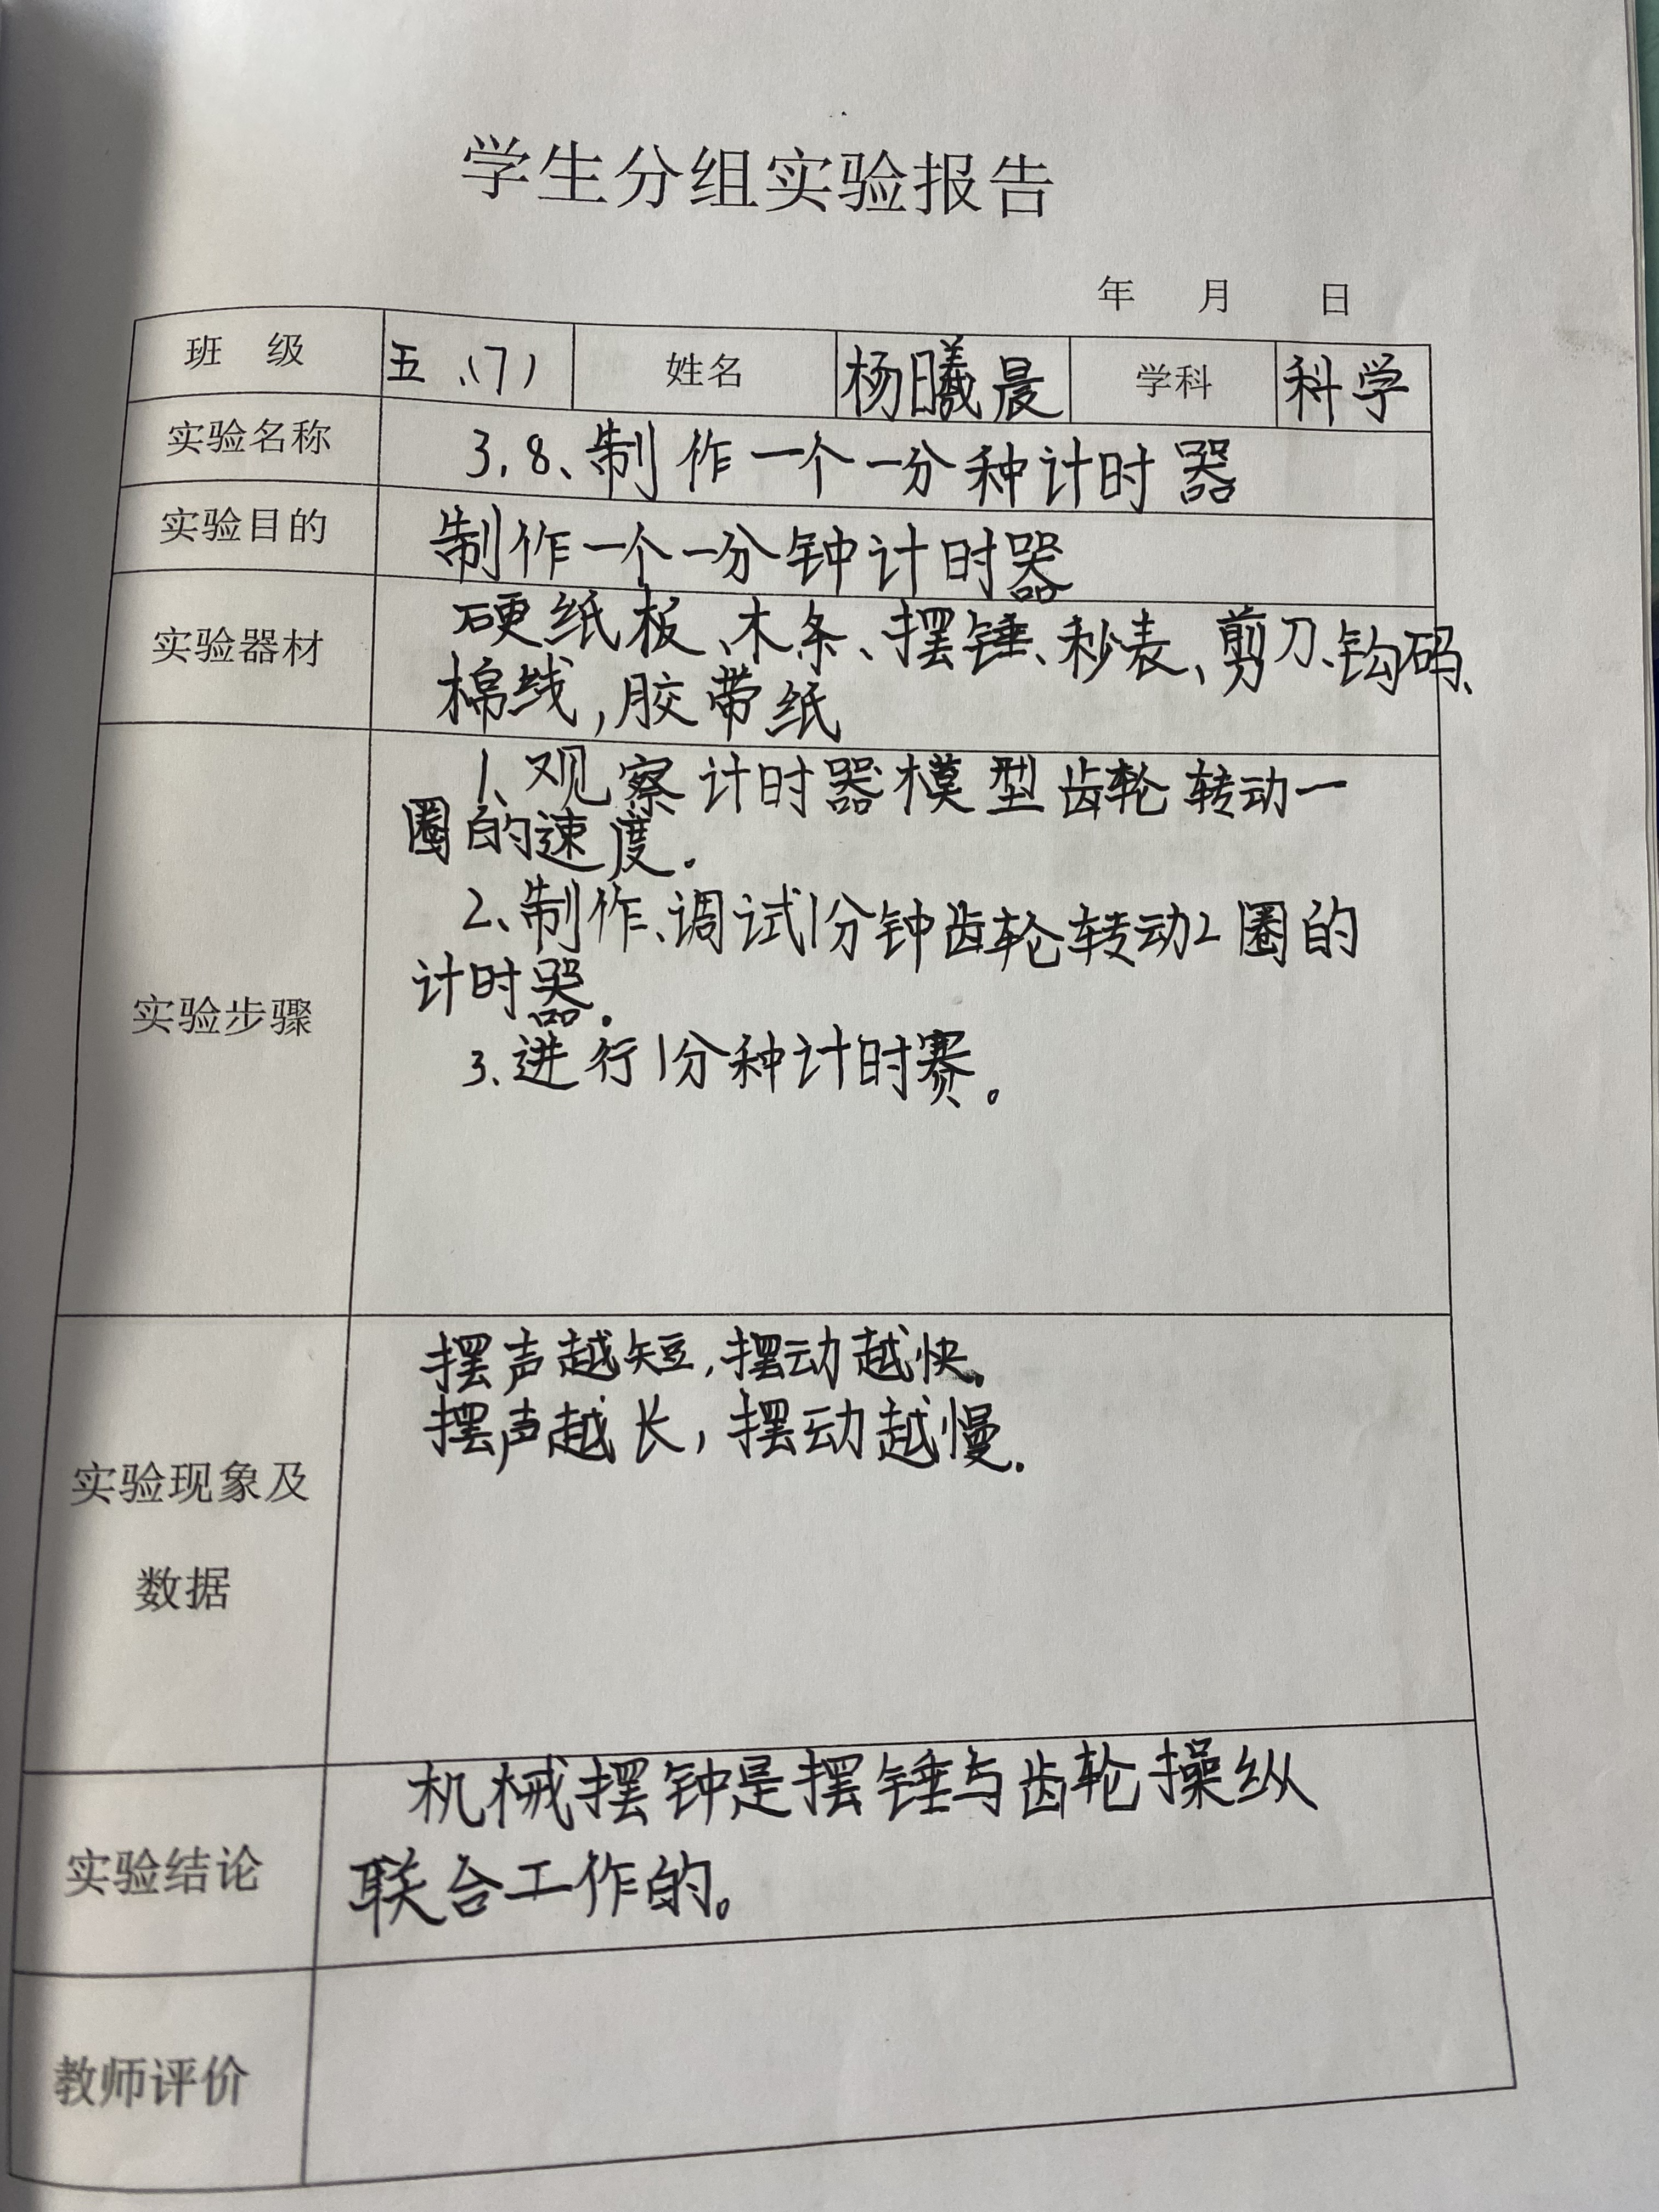 学生分组实验报告
年 月 日
班 级 五、(7) 姓名 杨曦晨 学科 科学
实验名称 3.8、制作一个一分种计时器
实验目的 制作一个一分钟计时器
实验器材 硬纸板、木条、摆锤、秒表、剪刀、钩码、
棉线,胶带纸
1、观察计时器模型齿轮转动一
圈的速度.
2、制作、调试1分钟齿轮转动2圈的
计时器.
实验步骤
3、进行1分种计时赛。
摆声越短,摆动越快.
摆声越长,摆动越慢.
实验现象及
数据
机械摆钟是摆锤与齿轮操纵
实验结论 联合工作的。
教师评价